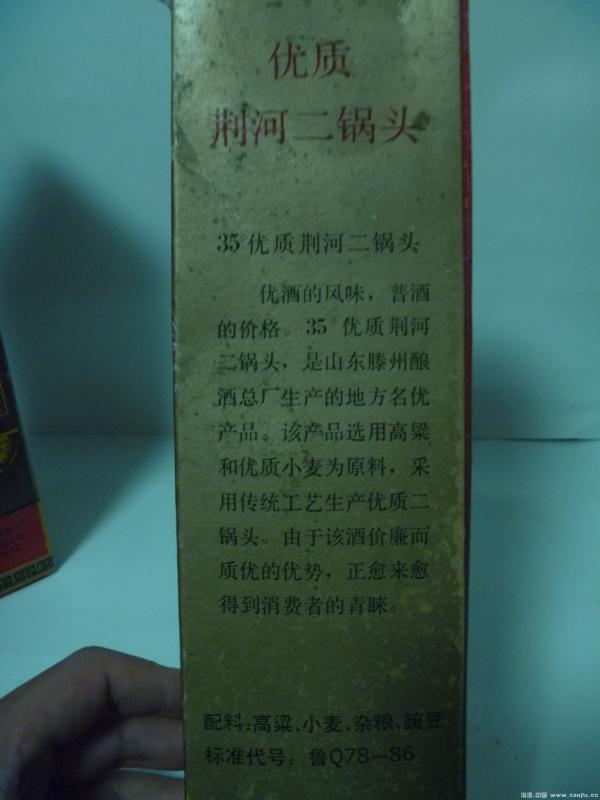 优质
荆河二锅头
35°优质荆河二锅头
优酒的风味，普酒
的价格。35°优质荆河
二锅头，是山东滕州酿
酒总厂生产的地方名优
产品。该产品选用高粱
和优质小麦为原料，采
用传统工艺生产优质二
锅头。由于该酒价廉而
质优的优势，正愈来愈
得到消费者的青睐。
配料:高粱、小麦、杂粮、豌豆
标准代号：鲁Q78—86
淘酒.中国 www.taojiu.cc